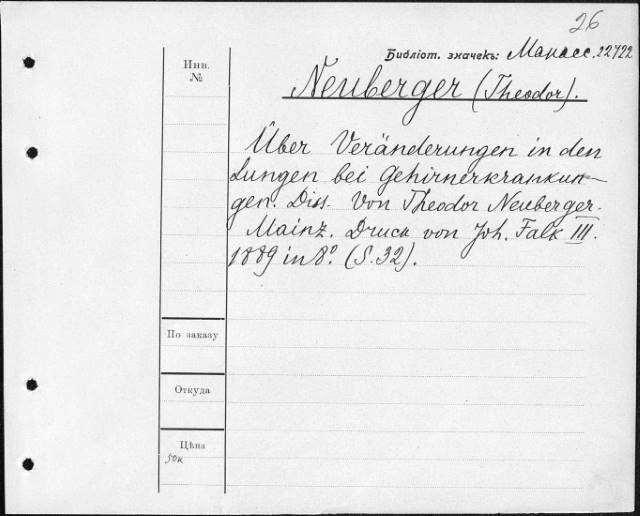 26
Библіот. значекъ: Манасс. 22722
Инв.
№
Neuberger (Theodor).
Über Veränderungen in den
Lungen bei Gehirnerkrankun-
gen. Diss. Von Theodor Neuberger.
Mainz. Druck von Joh. Falk III.
1889 in 8°. (S. 32).
По заказу
Откуда
Цѣна
50к